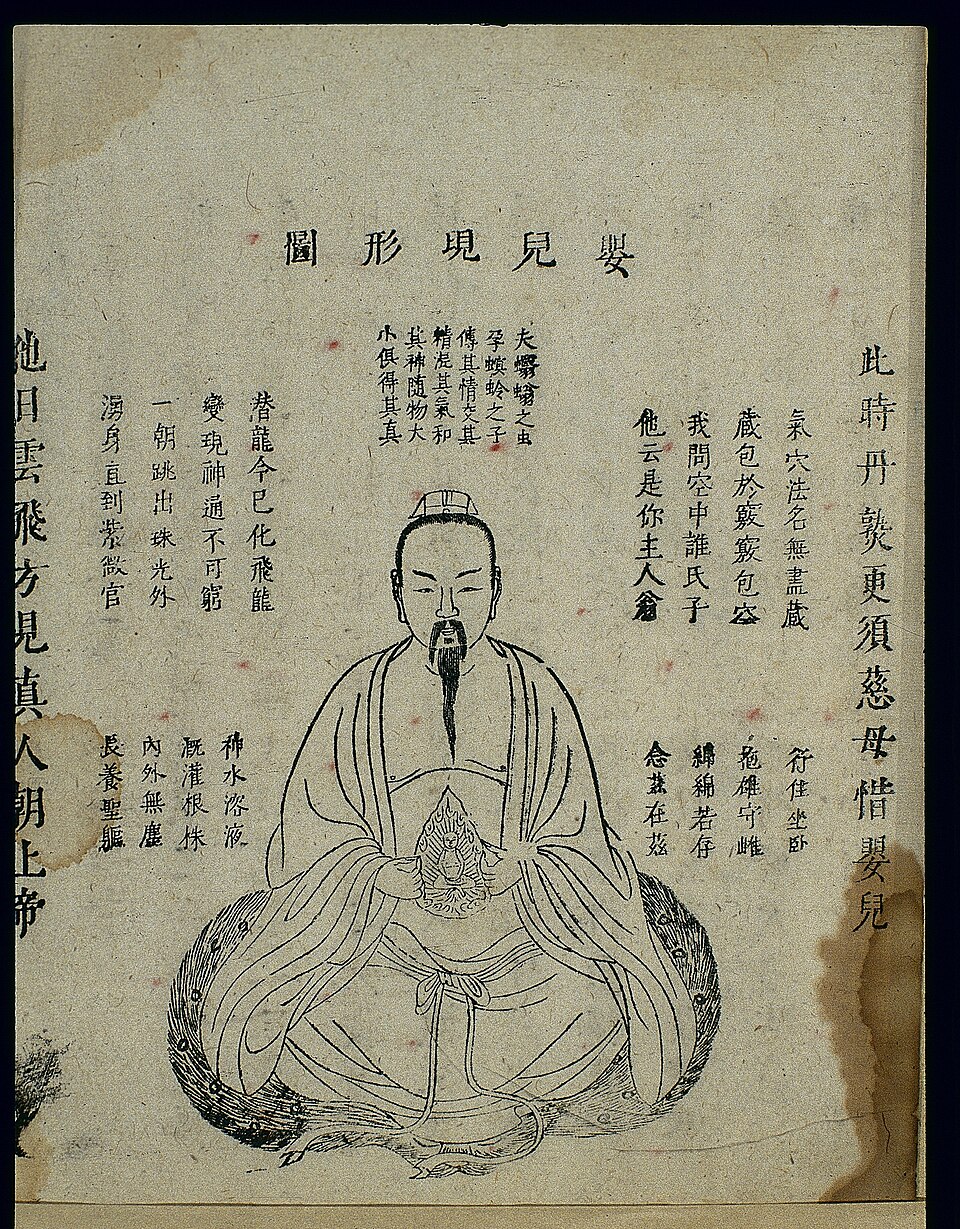 嬰兒現形圖
此時丹熟更須慈母惜嬰兒
氣穴法名無盡藏
藏包於竅竅包空
我問空中誰氏子
他云是你主人翁
行住坐臥
抱雄守雌
綿綿若存
念茲在茲
夫蠮螉之虫
孕螟蛉之子
傳其情交其
精混其氣和
其神隨物大
小俱得其真
潛龍今已化飛龍
變現神通不可窮
一朝跳出珠光外
湧身直到紫微宫
神水溶液
溉灌根株
內外無塵
長養聖軀
他日雲飛方見真人朝上帝